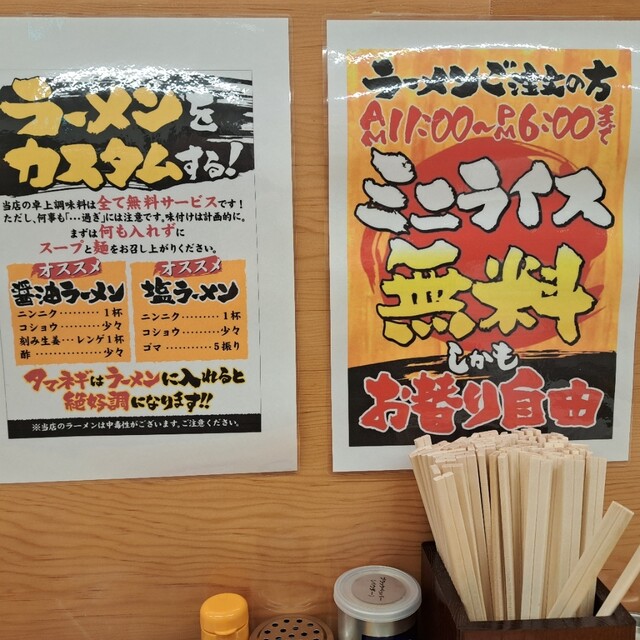 ラーメンを
カスタムする!
当店の卓上調味料は全て無料サービスです!
ただし、何事も「…過ぎ」には注意です。味付けは計画的に。
まずは何も入れずに
スープと麺をお召し上がりください。
オススメ
醤油ラーメン
ニンニク………1杯
コショウ………少々
刻み生姜…レンゲ1杯
酢……………少々
オススメ
塩ラーメン
ニンニク………1杯
コショウ………少々
ゴマ………5振り
タマネギはラーメンに入れると
絶好調になります!!
※当店のラーメンは中毒性がございます。ご注意ください。
ラーメンご注文の方
AM11:00~PM6:00まで
ミニライス
無料
しかも
お替り自由
ブラックペッパー